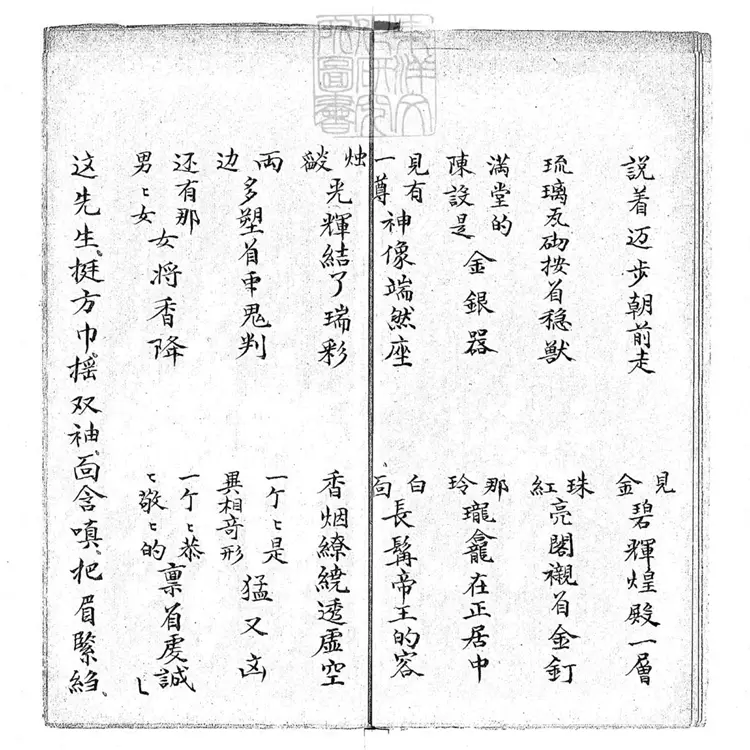 東洋文化研究所圖書
説着迈步朝前走 見金碧輝煌殿一層
琉璃瓦砌按首穏獸 珠紅亮閣襯首金釘
满堂的陳設是金銀器 那玲瓏龕在正居中
見有一尊神像端然座 白面長髯帝王的容
烛燄光輝結了瑞彩 香烟繚繞透虚空
両边多塑首鬼判 一个〻是異相奇形猛又凶
还有那男〻女女將香降 一个〻恭〻敬〻的禀首虔誠
这先生、挺方巾、摇双袖、面含嗔、把眉緊縐、